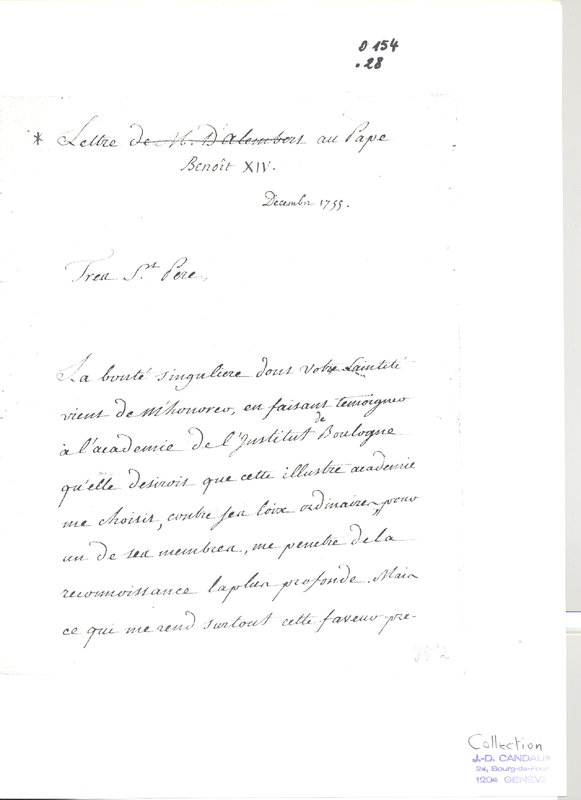 D 154
.28
* Lettre de M. D'alembert au Pape
Benoît XIV.
Decembre 1755.
Tres S.t Pere,
La bonté singuliere dont votre Sainteté
vient de m'honorer, en faisant temoigner
à l'academie de l'Institut de Boulogne
qu'elle desiroit que cette illustre academie
me choisit, contre ses loix ordinaires, pour
un de ses membres, me penetre de la
reconnoissance la plus profonde. Mais
ce qui me rend surtout cette faveur pre-
Collection
J.-D. CANDAUX
24, Bourg-de-Four
1204 GENÈVE